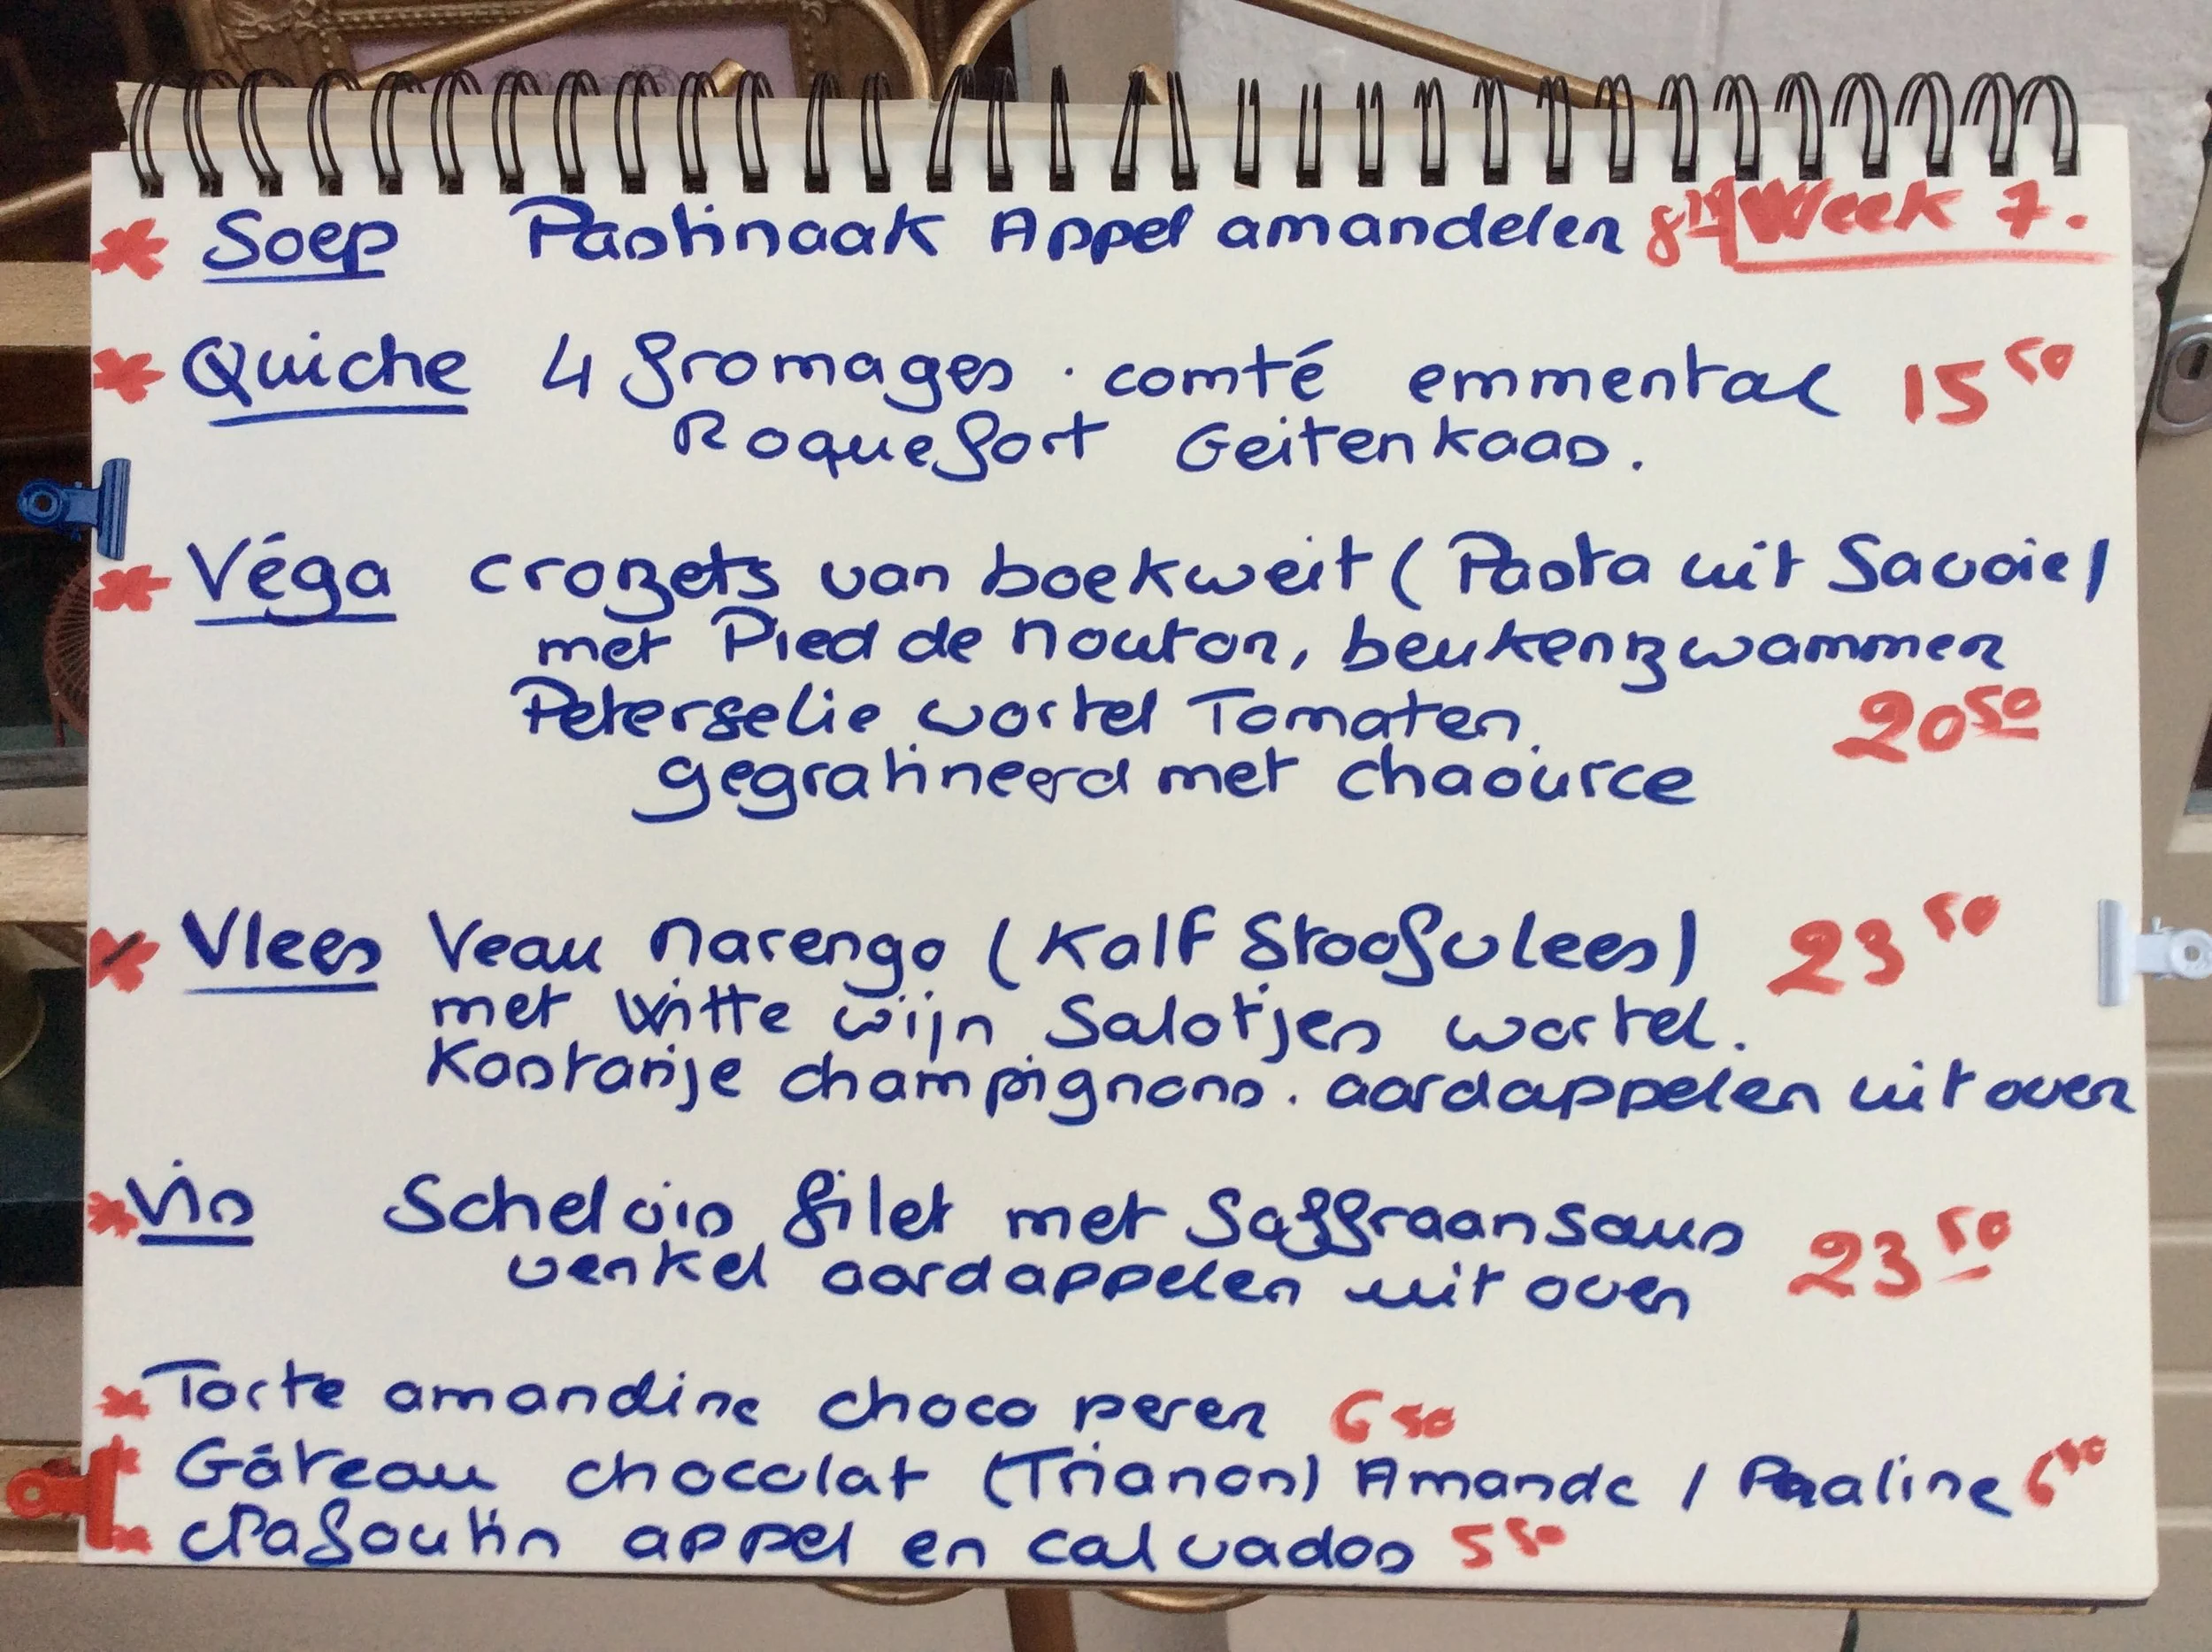 Soep Pastinaak Appel amandelen Week 7.
Quiche 4 fromages . comté emmental 15 50
Roquefort Geitenkaas.
Véga Crozets van boekweit (Pasta uit Savoie)
met Pied de Mouton, beukenzwammen
Peterselie wortel Tomaten. 20 50
gegratineerd met chaource
Vlees Veau Marengo (Kalf Stoofvlees) 23 50
met Witte wijn Salotjes wortel.
Kastanje champignons. aardappelen uit oven
Vis Schelvis filet met Saffraansaus 23 50
venkel aardappelen uit oven
Tarte amandine choco peren 6 50
Gâteau chocolat (Trianon) Amande / Praline 6 50
Clafoutin appel en calvados 5 50